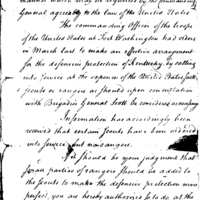 manner which may be required by the commanding
General agreeably to the Law of the United States
The commanding Officer of the troops
of the United States at Fort Washington had orders
in March last to make an effective arrangement
for the defensive protection of Kentucky by calling
into service at the expence of the United States such
scouts or rangers as should upon consultation
with Brigadier General Scott be considered as necessary
Information has accordingly been
received that certain Scouts have been ordered
into service but no rangers.
If it should be your judgment that
parties of rangers should be added to
the scouts to make the defensive protection more
perfect, you are hereby authorised to do at the